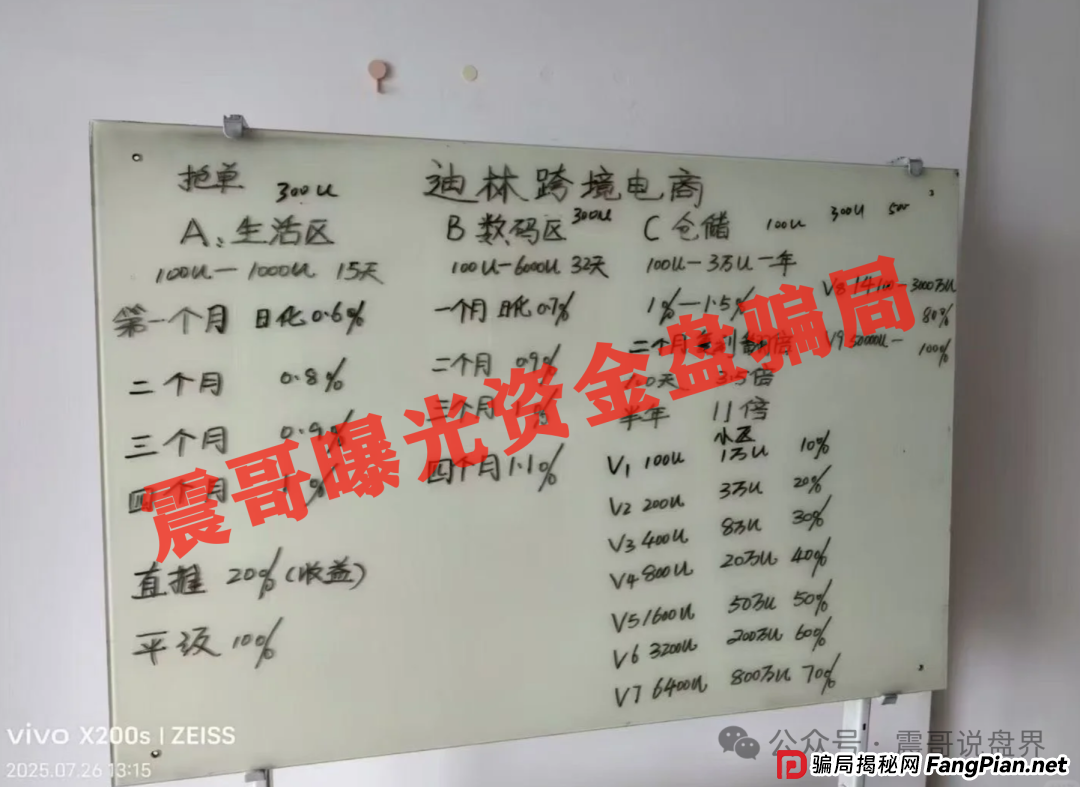 抢单 300U 迪林跨境电商
A、生活区 B 数码区 300U C 仓储 100U 300U 500
100U—1000U 15天 100U—6000U 32天 100U—3万U 一年
第一个月 日化0.6% 一个月 日化0.7% 1%—1.5% V8 14100—3000万U 80%
二个月 0.8% 二个月 0.9% 二个月 翻倍 V9 50000U— 100%
三个月 0.9% 三个月 3.5倍
四个月 % 四个月 1.1% 半年 11倍
小区
V1 100U 1万U 10%
V2 200U 3万U 20%
V3 400U 8万U 30%
V4 800U 20万U 40%
V5 1600U 50万U 50%
V6 3200U 200万U 60%
V7 6400U 800万U 70%
直推 20%(收益)
平级 10%
震哥曝光资金盘骗局
vivo X200s | ZEISS
2025.07.26 13:15
公众号 · 震哥说盘界
骗局揭秘网 FangPian.net